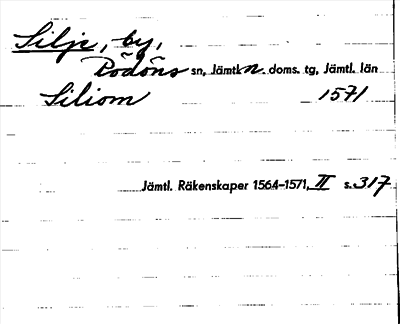 Silje, by,
Rödöns sn, Jämtl. n. doms. tg, Jämtl. län
Siliom 1571
Jämtl. Räkenskaper 1564-1571, II s. 317